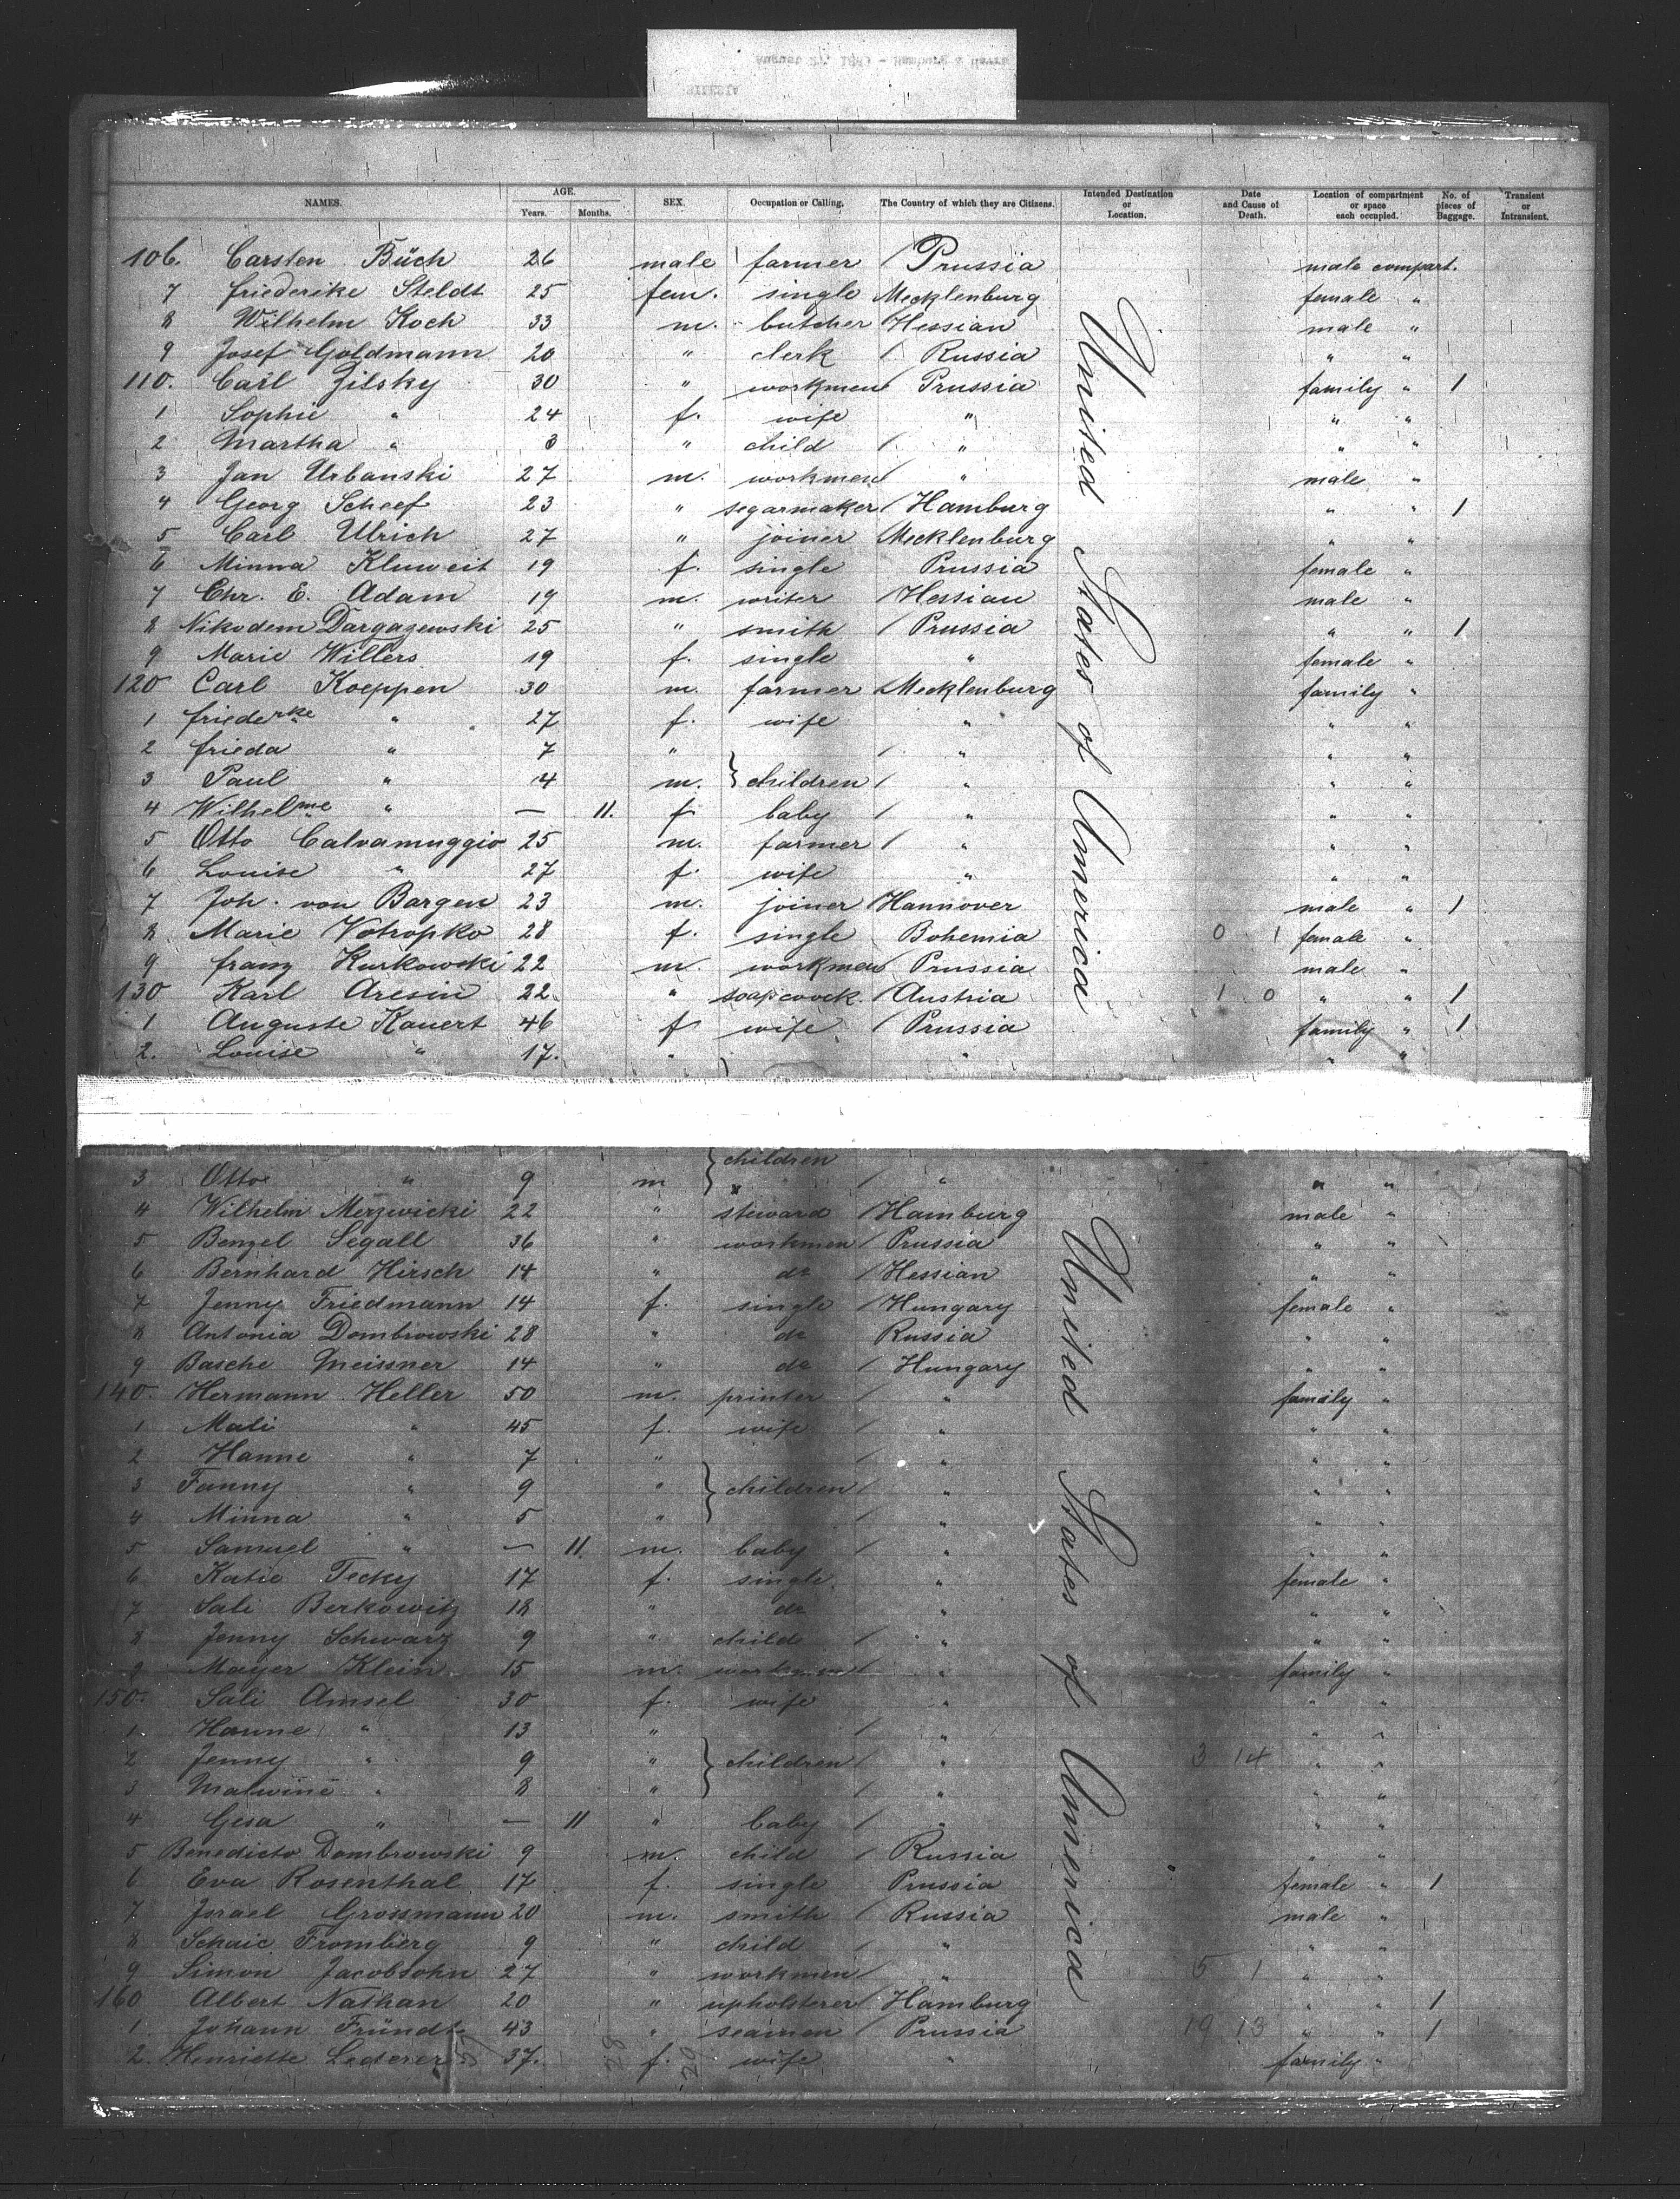 NAMES. AGE. Years. Months. SEX. Occupation or Calling. The Country of which they are Citizens. Intended Destination or Location. Date and Cause of Death. Location of compartment or space each occupied. No. of pieces of Baggage. Transient or Intransient.
106. Carsten Büch 26 male farmer / Prussia male compart.
7 friederike Steldt 25 fem. single Mecklenburg female "
8 Wilhelm Koch 33 m. butcher Hessian male "
9 Josef Goldmann 20 " clerk / Russia " "
110. Carl Zilsky 30 " workmen Prussia family " 1
1 Sophie " 24 f. wife " " "
2 Martha " 3 " child / " " "
3 Jan Urbanski 27 m. workmen " male "
4 Georg Scheef 23 " segarmaker / Hamburg " " 1
5 Carl Ulrich 27 " joiner Mecklenburg " "
6 Minna Kluweit 19 f. single Prussia female "
7 Chr. E. Adam 19 m. writer / Hessian male "
8 Nikodem Dargazewski 25 " smith / Prussia " " 1
9 Marie Willers 19 f. single " female "
120 Carl Koeppen 30 m. farmer Mecklenburg family "
1 friederke " 27 f. wife " " "
2 frieda " 7 " / " " "
3 Paul " 4 m. } children / " " "
4 Wilhelme " — 11. f baby / " " "
5 Otto Calvamuggio 25 m. farmer / " " "
6 Louise " 27 f. wife " " "
7 Joh. von Bargen 23 m. joiner Hannover male " 1
8 Marie Votropko 28 f. single Bohemia 0 1 female "
9 franz Kurkowski 22 m. workmen Prussia male "
130 Karl Aresin 22 " soapcoock / Austria 1 0 " " 1
1 Auguste Kauert 46 f wife / Prussia family " 1
2. Louise " 17. " " " "
United States of America
children
3 Otto " 9 m / " " "
4 Wilhelm Merzwicki 22 " steward / Hamburg male "
5 Benzel Segall 36 " workmen / Prussia " "
6 Bernhard Hirsch 14 " do / Hessian " "
7 Jenny Friedmann 14 f. single / Hungary female "
8 Antonia Dombrowski 28 " do Russia " "
9 Basche Meissner 14 " do / Hungary " "
140. Hermann Heller 50 m. printer / " family "
1 Mali " 45 f. wife / " " "
2 Hanne " 7 " / " " "
3 Fanny " 9 " } children / " " "
4 Minna " 5 " / " " "
5 Samuel " — 11. m. baby / " " "
6 Katie Tecky 17 f. single " female "
7 Sali Berkowitz 18 " do " " "
8 Jenny Schwarz 9 " childe / " " "
9 Mayer Klein 15 m. workmen " family "
150. Sali Amsel 30 f. wife " " "
1. Hanne " 13 " / " " "
2 Jenny " 9 " } children / " 3 14 " "
3 Malwine " 8 " / " " "
4 Gesa " — 11 " baby / " " "
5 Benedicto Dombrowski 9 m. child / Russia " "
6 Eva Rosenthal 17 f. single Prussia female " 1
7 Israel Grossmann 20 m. smith / Russia male "
8 Schaie Fromberg 9 " child / " " "
9 Simon Jacobsohn 27 " workmen / " 5 1 " "
160 Albert Nathan 20 " upholsterer / Hamburg " " 1
1. Johann Fründt 43 " seamen / Prussia 19 13 " " 1
2. Henriette Lederer 37. f. wife " family "
United States of America